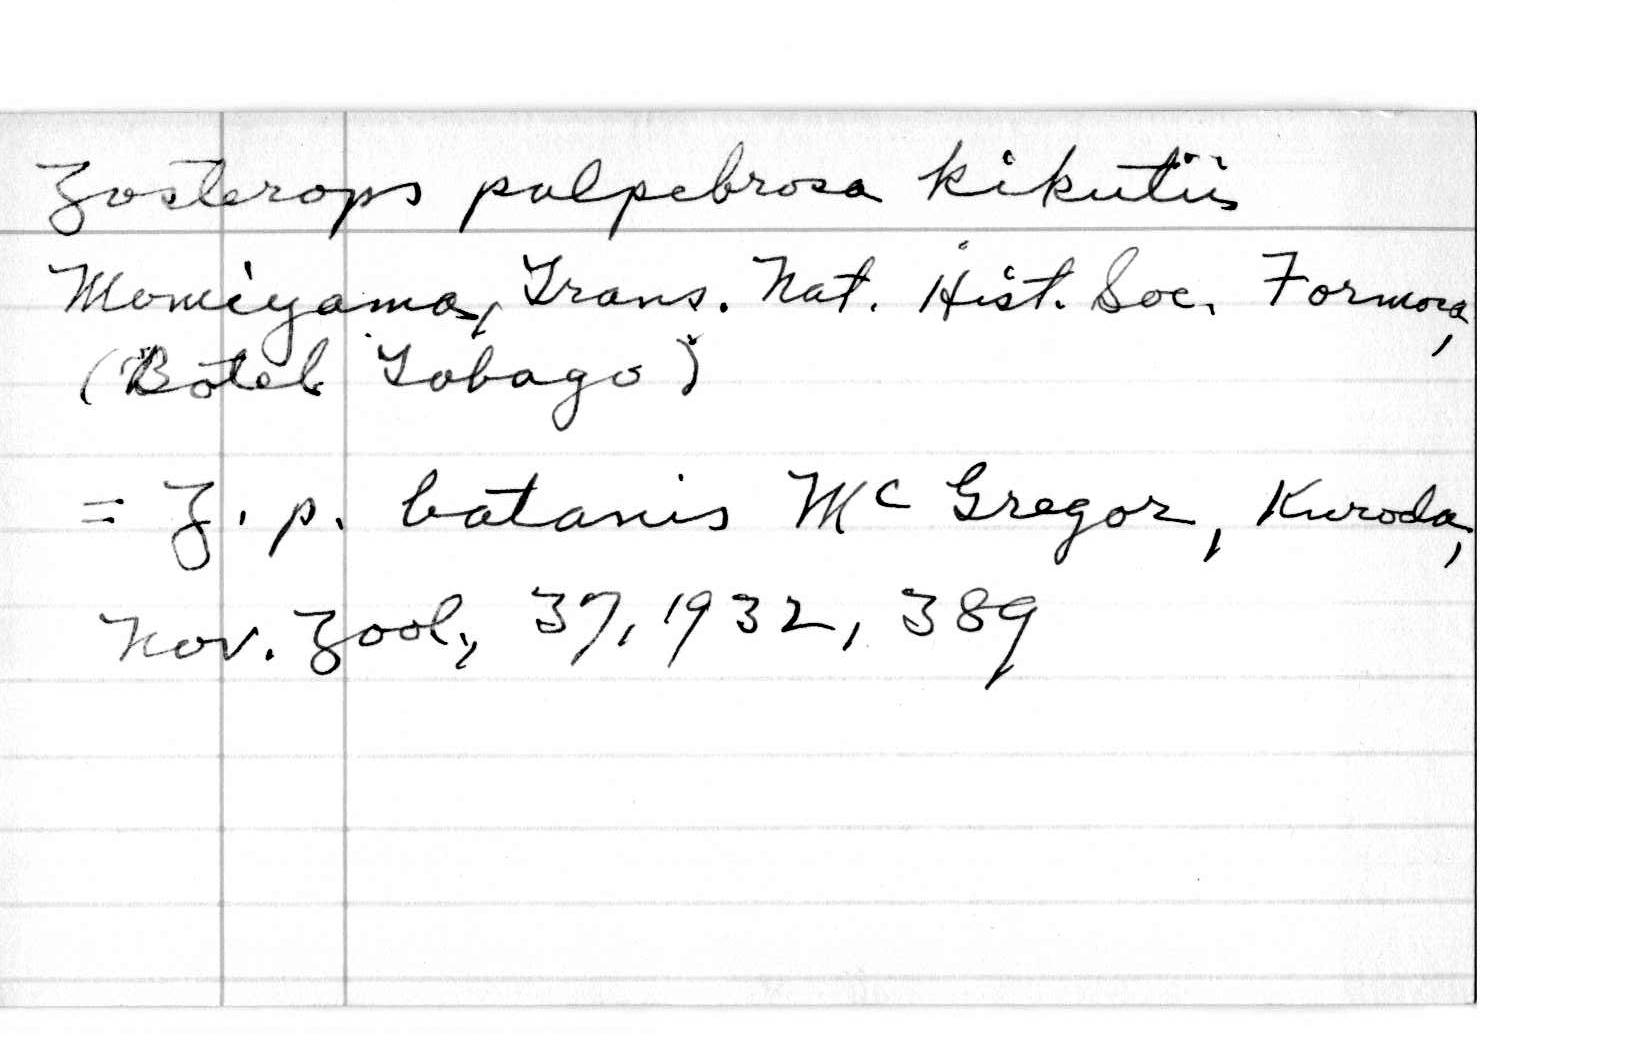 Zosterops palpebrosa kikutii
Momiyama, Trans. Nat. Hist. Soc. Formosa,
(Botel Tobago)
= Z. p. batanis McGregor, Kuroda,
Nov. Zool., 37, 1932, 389